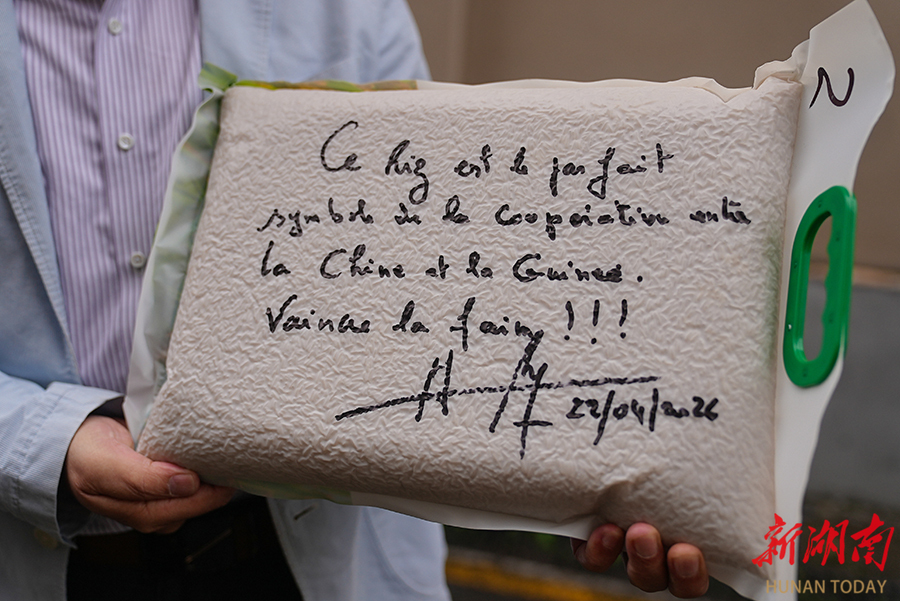 N
Ce Riz est le parfait
symbole de la coopération entre
la Chine et la Guinée.
Vaincre la faim !!!
22/04/2026
新湖南
HUNAN TODAY